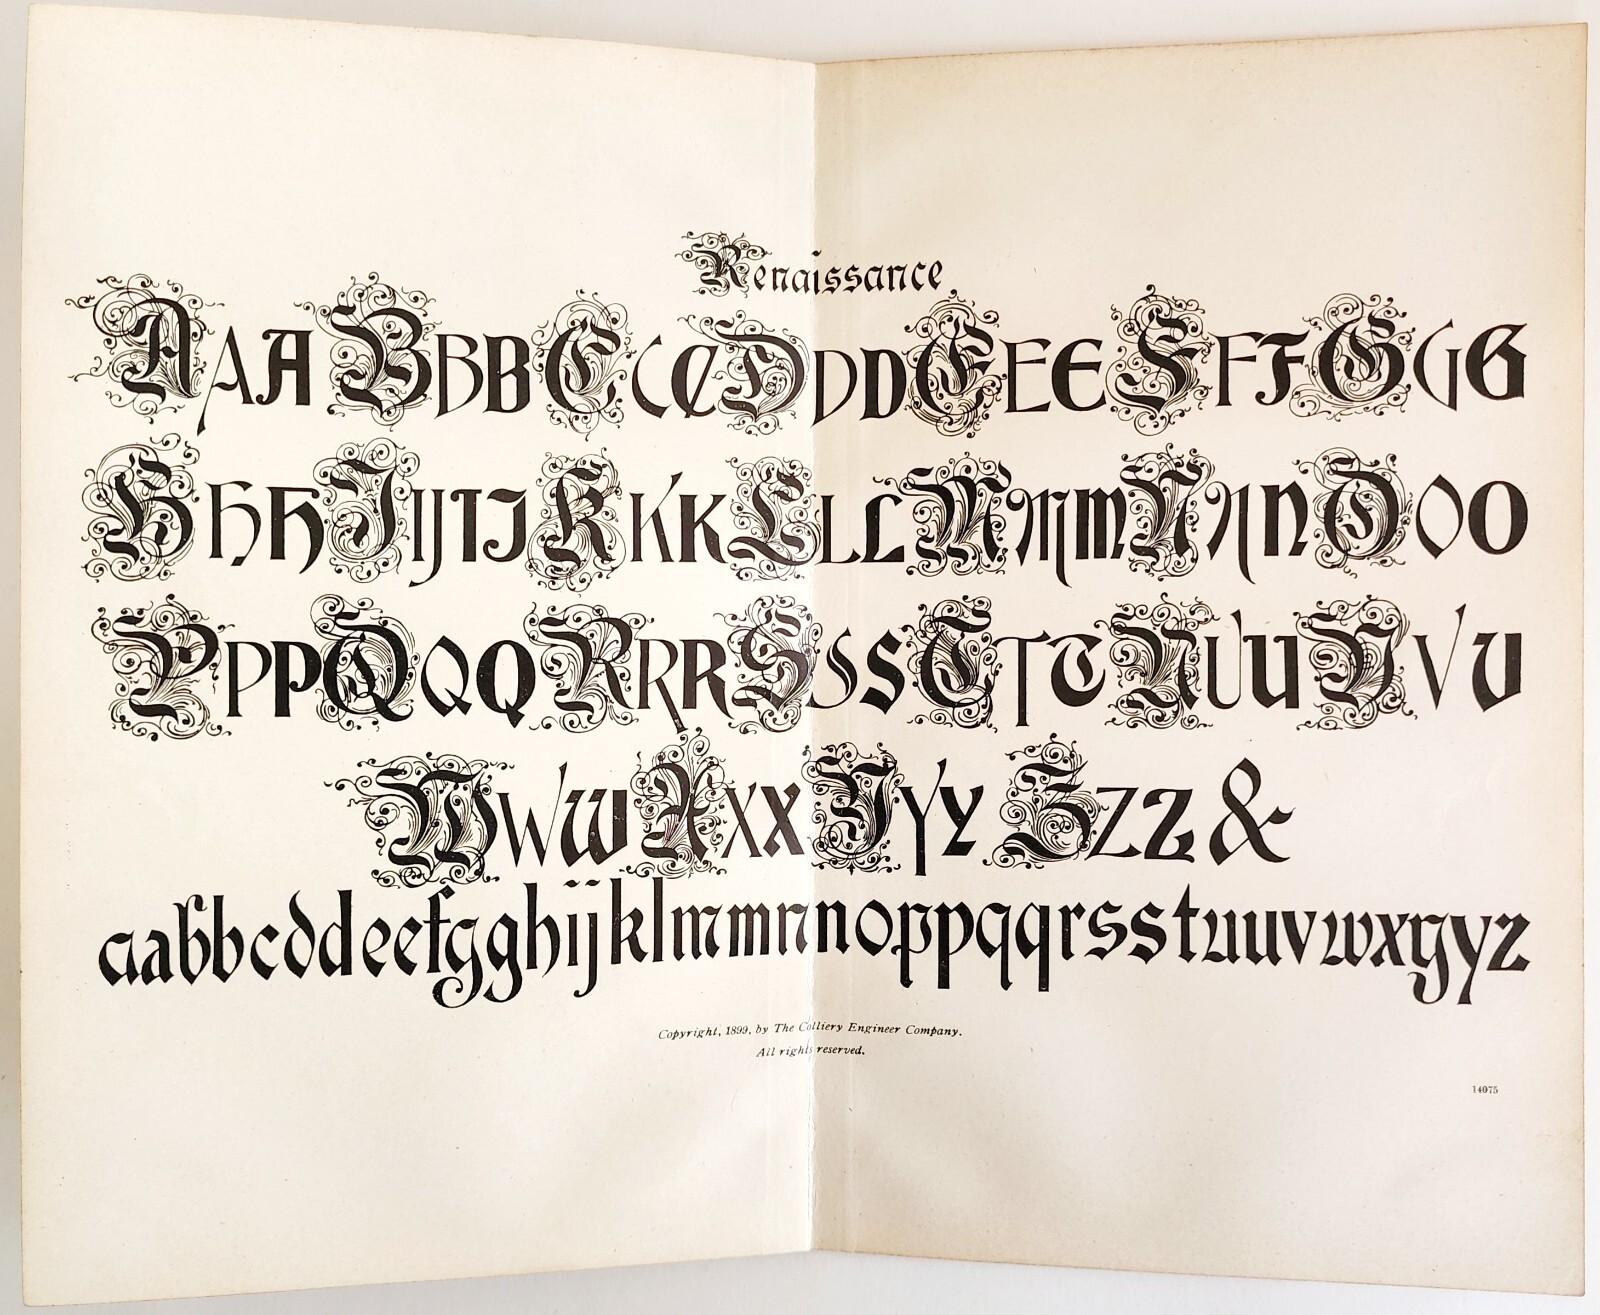 Renaissance
AAA BBB CCC DDD EEE FFF GGG
HHH IIJIJ KKK LLL MMM NNN OOO
PPP QQQ RRR SSS TTT UUU VVV
WWW XXX YYY ZZZ &
aabbbcdddeeefgghijjklmmnnoppqqrsstuuvwxyyz
Copyright, 1899, by The Colliery Engineer Company.
All rights reserved.
14075